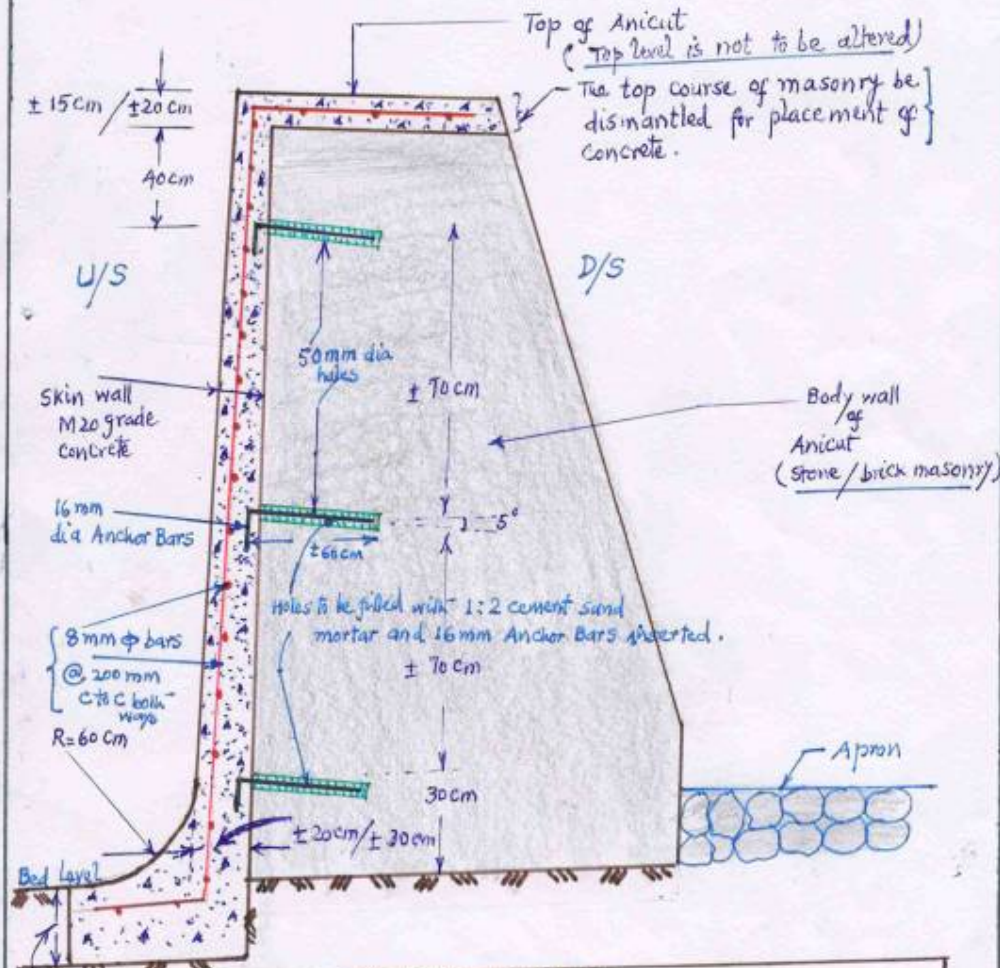 Top of Anicut
( Top level is not to be altered)
The top course of masonry be
dismantled for placement of
concrete.
± 15 cm / ±20 cm
40cm
U/S
D/S
50mm dia
holes
± 70 cm
Skin wall
M20 grade
concrete
Body wall
of
Anicut
(Stone / brick masonry)
16 mm
dia Anchor Bars
5°
±66cm
Holes to be filled with 1:2 cement sand
mortar and 16mm Anchor Bars inserted.
8mm φ bars
@ 200 mm
C to C both
ways
± 70 cm
R=60 cm
Apron
30cm
± 20cm/± 30cm
Bed Level